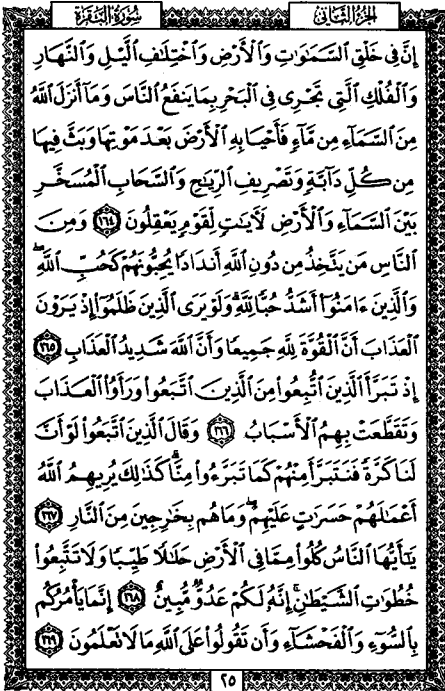 سُورَةُ البَقَرَةِ
الجُزْءُ الثَّانِي
إِنَّ فِى خَلْقِ ٱلسَّمَٰوَٰتِ وَٱلْأَرْضِ وَٱخْتِلَٰفِ ٱلَّيْلِ وَٱلنَّهَارِ
وَٱلْفُلْكِ ٱلَّتِى تَجْرِى فِى ٱلْبَحْرِ بِمَا يَنفَعُ ٱلنَّاسَ وَمَآ أَنزَلَ ٱللَّهُ
مِنَ ٱلسَّمَآءِ مِن مَّآءٍ فَأَحْيَا بِهِ ٱلْأَرْضَ بَعْدَ مَوْتِهَا وَبَثَّ فِيهَا
مِن كُلِّ دَآبَّةٍ وَتَصْرِيفِ ٱلرِّيَٰحِ وَٱلسَّحَابِ ٱلْمُسَخَّرِ
بَيْنَ ٱلسَّمَآءِ وَٱلْأَرْضِ لَءَايَٰتٍ لِّقَوْمٍ يَعْقِلُونَ ١٦٤ وَمِنَ
ٱلنَّاسِ مَن يَتَّخِذُ مِن دُونِ ٱللَّهِ أَندَادًا يُحِبُّونَهُمْ كَحُبِّ ٱللَّهِۖ
وَٱلَّذِينَ ءَامَنُوٓا۟ أَشَدُّ حُبًّا لِّلَّهِۗ وَلَوْ يَرَى ٱلَّذِينَ ظَلَمُوٓا۟ إِذْ يَرَوْنَ
ٱلْعَذَابَ أَنَّ ٱلْقُوَّةَ لِلَّهِ جَمِيعًا وَأَنَّ ٱللَّهَ شَدِيدُ ٱلْعَذَابِ ١٦٥
إِذْ تَبَرَّأَ ٱلَّذِينَ ٱتُّبِعُوا۟ مِنَ ٱلَّذِينَ ٱتَّبَعُوا۟ وَرَأَوُا۟ ٱلْعَذَابَ
وَتَقَطَّعَتْ بِهِمُ ٱلْأَسْبَابُ ١٦٦ وَقَالَ ٱلَّذِينَ ٱتَّبَعُوا۟ لَوْ أَنَّ
لَنَا كَرَّةً فَنَتَبَرَّأَ مِنْهُمْ كَمَا تَبَرَّءُوا۟ مِنَّاۗ كَذَٰلِكَ يُرِيهِمُ ٱللَّهُ
أَعْمَٰلَهُمْ حَسَرَٰتٍ عَلَيْهِمْۖ وَمَا هُم بِخَٰرِجِينَ مِنَ ٱلنَّارِ ١٦٧
يَٰٓأَيُّهَا ٱلنَّاسُ كُلُوا۟ مِمَّا فِى ٱلْأَرْضِ حَلَٰلًا طَيِّبًا وَلَا تَتَّبِعُوا۟
خُطُوَٰتِ ٱلشَّيْطَٰنِۚ إِنَّهُۥ لَكُمْ عَدُوٌّ مُّبِينٌ ١٦٨ إِنَّمَا يَأْمُرُكُم
بِٱلسُّوٓءِ وَٱلْفَحْشَآءِ وَأَن تَقُولُوا۟ عَلَى ٱللَّهِ مَا لَا تَعْلَمُونَ ١٦٩
٢٥